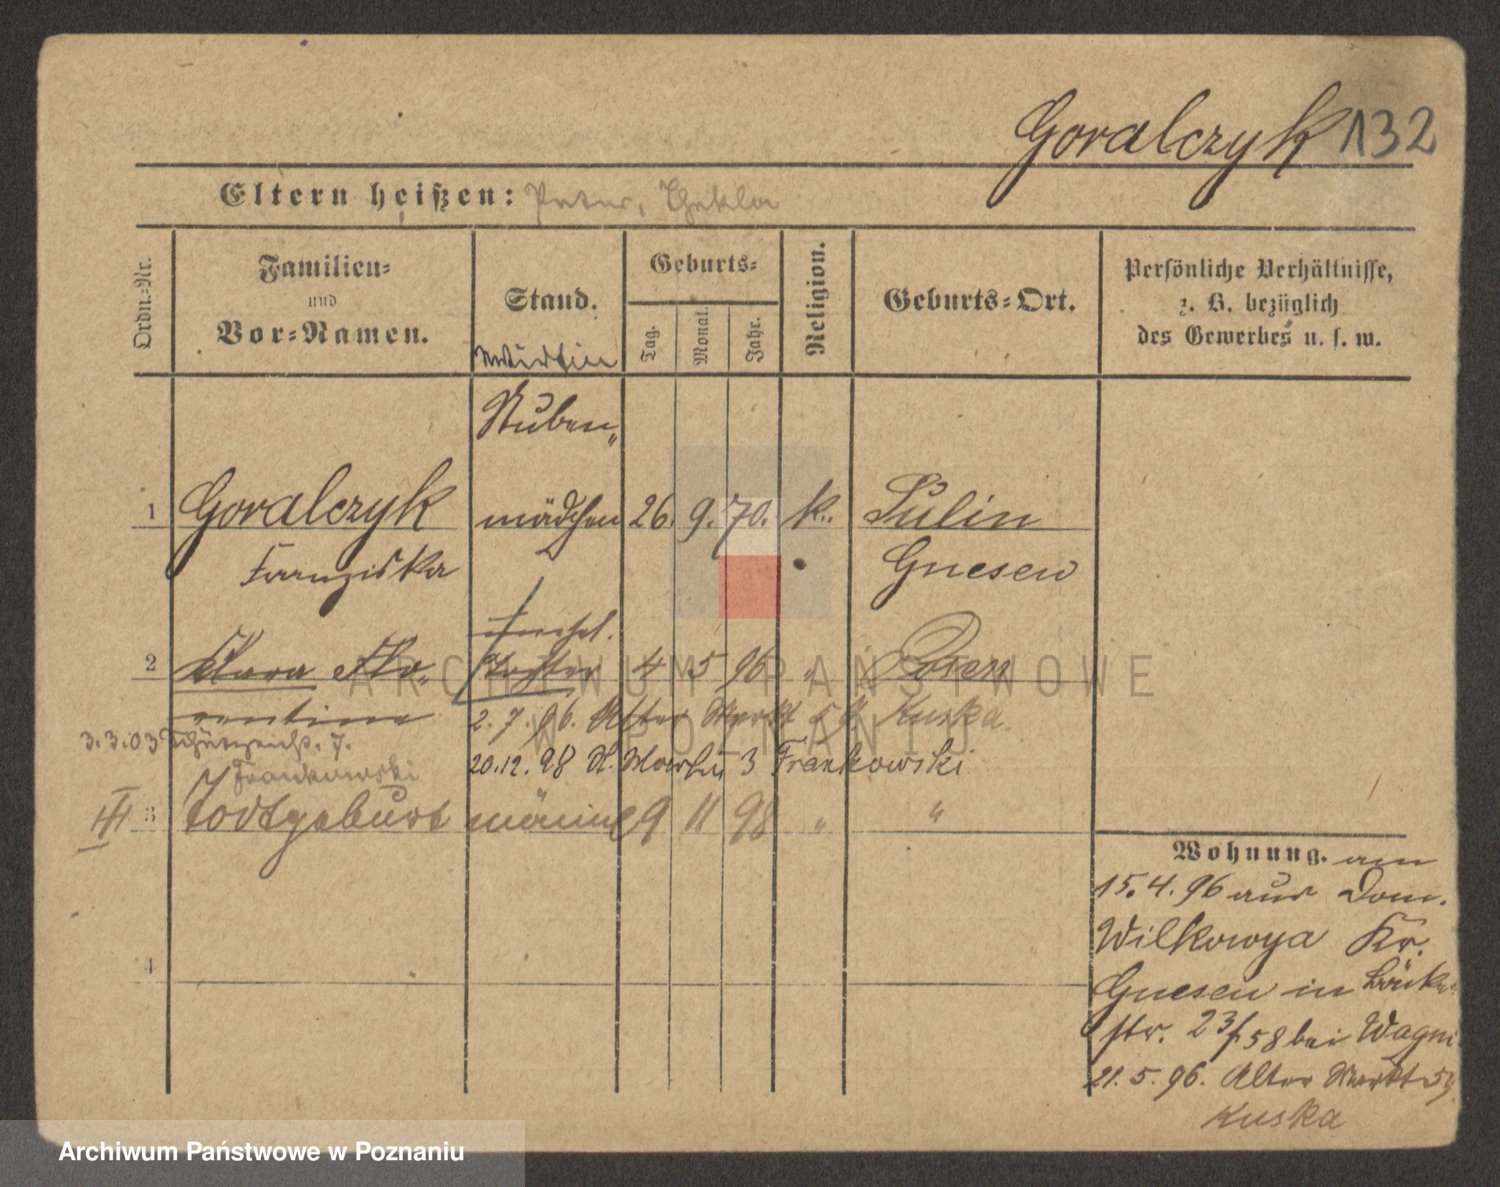 Goralczyk 132
Eltern heißen: Peter, Thekla
Ordn.-Nr.
Familien- und Vor-Namen.
Stand.
Wirtin
Geburts-
Tag. Monat. Jahr.
Religion.
Geburts-Ort.
Persönliche Verhältnisse,
z. B. bezüglich
des Gewerbes u. s. w.
Stuben-
1 Goralczyk mädchen 26. 9. 70. k. Sulin
Franziska Gnesen
unehel.
2 Klara Flo- Tochter 4 5 96 " Posen
rentine 2. 7. 96. Alter Markt 59 Kuska
3.3.03 Schützenstr. 7.
Frankowski
20.12.98 3 Frankowski
III 3 todtgeburt männl 9 11 98 " "
4
Wohnung. am
15.4.96 aus Dom.
Wilkowya Kr.
Gnesen in
str. 23/58 bei
21.5.96. Alter Markt 59
Kuska
ARCHIWUM PAŃSTWOWE
W POZNANIU
Archiwum Państwowe w Poznaniu